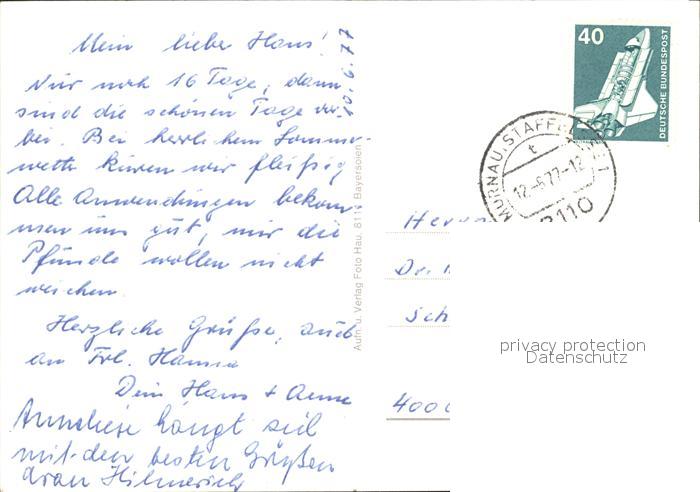 Mein lieber Hans!
10.6.77
Nur noch 16 Tage, dann
sind die schönen Tage vor-
bei. Bei herrlichem Sommer-
wetter kuren wir fleißig
Alle Anwendungen bekom-
men uns gut, nur die
Pfunde wollen nicht
weichen.
Herzliche Grüße, auch
an Frl. Hanna
Dein Hans + Aenne
Anneliese hängt sich
mit den besten Grüßen
dran
Aufn. u. Verlag Foto Hau, 811 Bayersoien
40
DEUTSCHE BUNDESPOST
MURNAU, STAFFELSEE 1
t
12.-6.77-12
8110
Herrn
Dr.
Sch
4000
privacy protection
Datenschutz